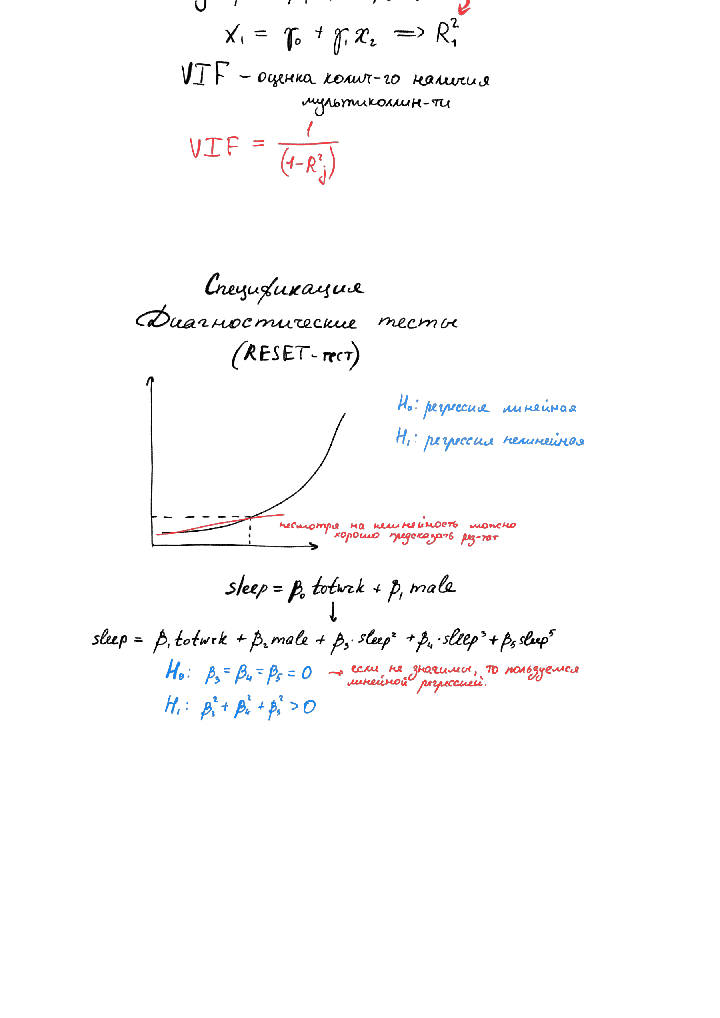 x₁ = γ₀ + γ₁x₂ => R₁²
VIF - оценка колич-го наличия
мультиколлин-ти
VIF = 1/(1-R²j)
Спецификация
Диагностические тесты
(RESET-тест)
H₀: регрессия линейная
H₁: регрессия нелинейная
несмотря на нелинейность можно
хорошо предсказать рез-тат
sleep = β₀ totwrk + β₁ male
↓
sleep = β₁ totwrk + β₂ male + β₃·sleep² + β₄·sleep³ + β₅ sleep⁵
H₀: β₃ = β₄ = β₅ = 0 → если не значимы, то пользуемся
линейной регрессией.
H₁: β₃² + β₄² + β₅² > 0